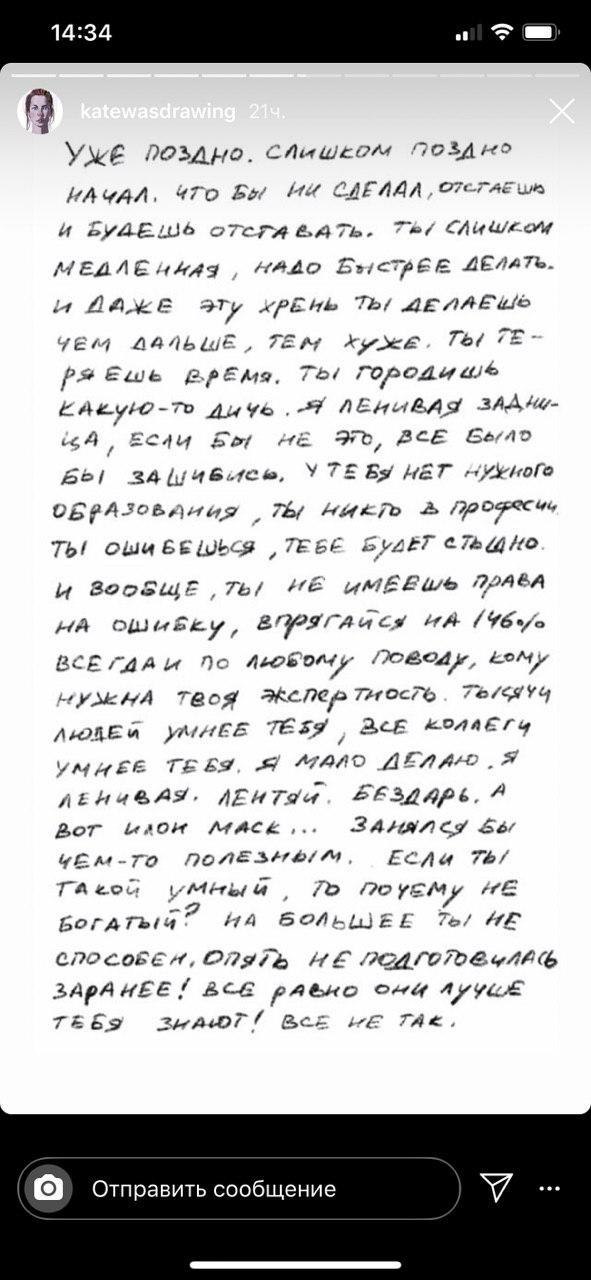 14:34
katewasdrawing 21ч.
УЖЕ ПОЗДНО. СЛИШКОМ ПОЗДНО
НАЧАЛ. ЧТО БЫ НИ СДЕЛАЛ, ОТСТАЕШЬ
И БУДЕШЬ ОТСТАВАТЬ. ТЫ СЛИШКОМ
МЕДЛЕННАЯ, НАДО БЫСТРЕЕ ДЕЛАТЬ.
И ДАЖЕ ЭТУ ХРЕНЬ ТЫ ДЕЛАЕШЬ
ЧЕМ ДАЛЬШЕ, ТЕМ ХУЖЕ. ТЫ ТЕ-
РЯЕШЬ ВРЕМЯ. ТЫ ГОРОДИШЬ
КАКУЮ-ТО ДИЧЬ. Я ЛЕНИВАЯ ЗАДНИ-
ЦА, ЕСЛИ БЫ НЕ ЭТО, ВСЕ БЫЛО
БЫ ЗАШИБИСЬ. У ТЕБЯ НЕТ НУЖНОГО
ОБРАЗОВАНИЯ, ТЫ НИКТО В ПРОФЕСИИ
ТЫ ОШИБЕШЬСЯ, ТЕБЕ БУДЕТ СТЫДНО.
И ВООБЩЕ, ТЫ НЕ ИМЕЕШЬ ПРАВА
НА ОШИБКУ, ВПРЯГАЙСЯ НА 146%
ВСЕГДА И ПО ЛЮБОМУ ПОВОДУ, КОМУ
НУЖНА ТВОЯ ЭКСПЕРТНОСТЬ. ТЫСЯЧИ
ЛЮДЕЙ УМНЕЕ ТЕБЯ, ВСЕ КОЛЛЕГИ
УМНЕЕ ТЕБЯ. Я МАЛО ДЕЛАЮ. Я
ЛЕНИВАЯ. ЛЕНТЯЙ. БЕЗДАРЬ. А
ВОТ ИЛОН МАСК... ЗАНЯЛСЯ БЫ
ЧЕМ-ТО ПОЛЕЗНЫМ. ЕСЛИ ТЫ
ТАКОЙ УМНЫЙ, ТО ПОЧЕМУ НЕ
БОГАТЫЙ? НА БОЛЬШЕЕ ТЫ НЕ
СПОСОБЕН. ОПЯТЬ НЕ ПОДГОТОВИЛАСЬ
ЗАРАНЕЕ! ВСЕ РАВНО ОНИ ЛУЧШЕ
ТЕБЯ ЗНАЮТ! ВСЕ НЕ ТАК.
Отправить сообщение